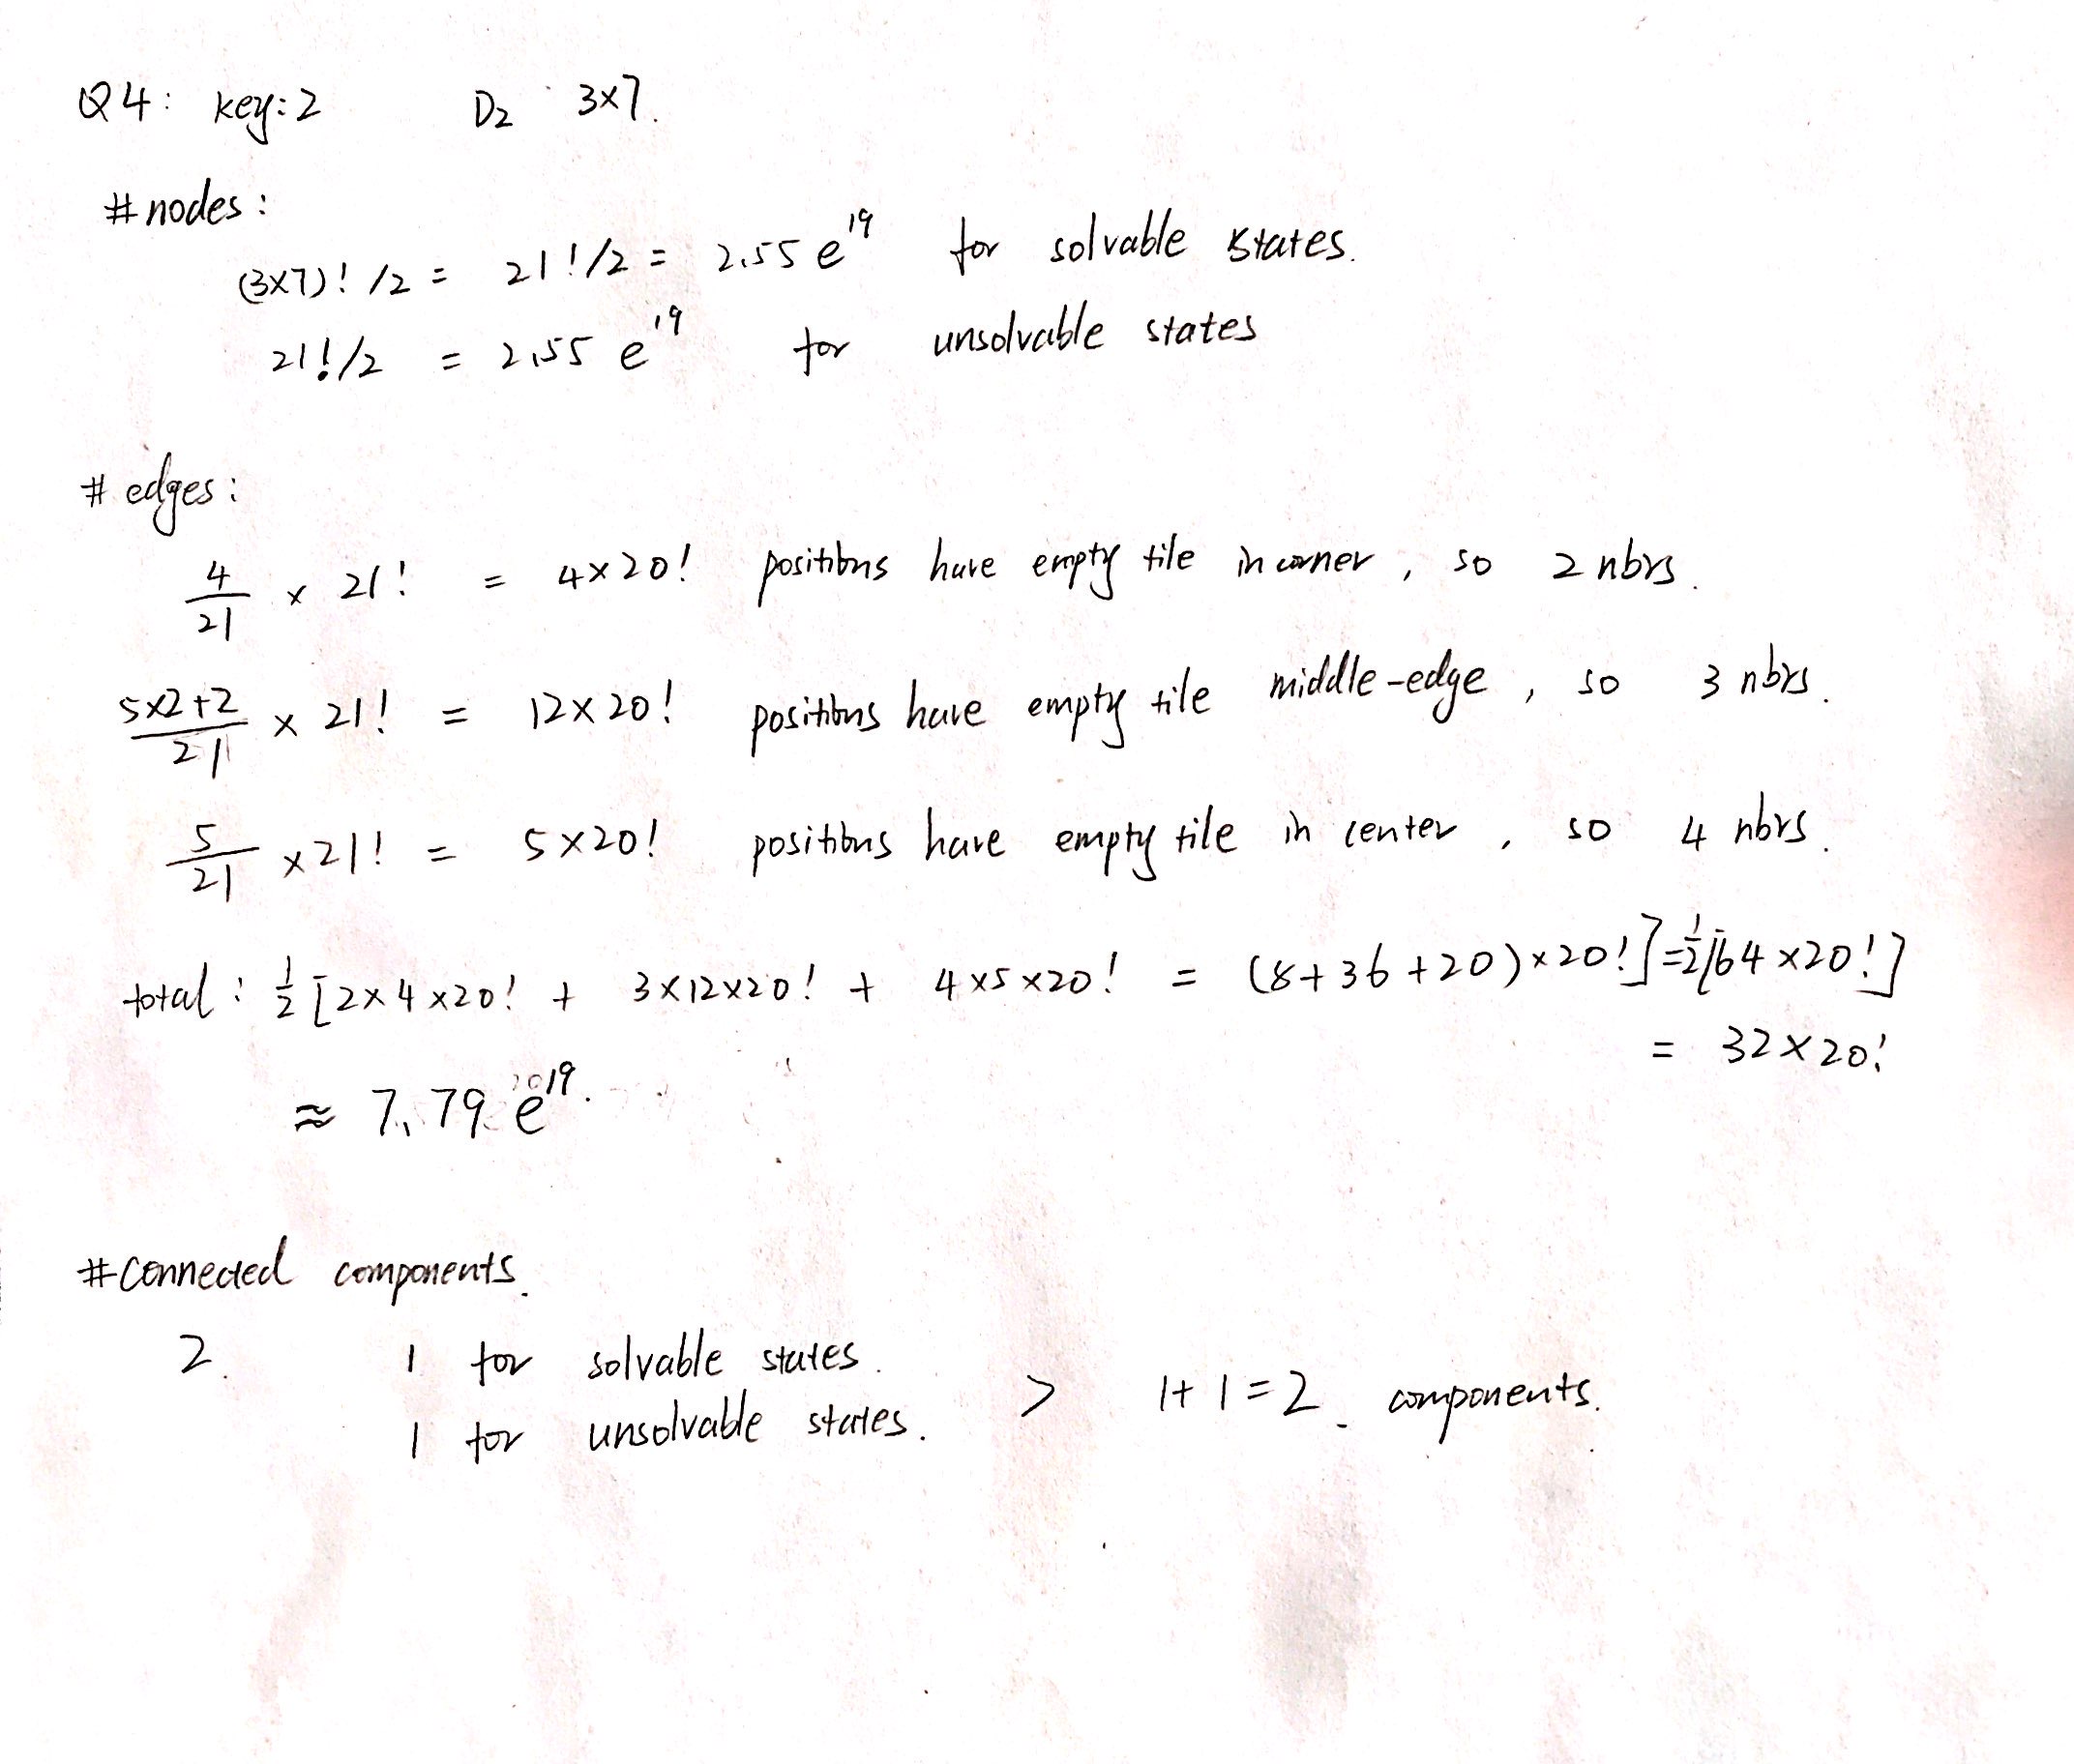 Q4: key:2 D₂ 3×7.
#nodes:
(3×7)! /2 = 21!/2 = 2.55 e¹⁹ for solvable states.
21!/2 = 2.55 e¹⁹ for unsolvable states
# edges:
4/21 × 21! = 4×20! positions have empty tile in corner, so 2 nbrs.
5×2+2/21 × 21! = 12×20! positions have empty tile middle-edge, so 3 nbrs.
5/21 ×21! = 5×20! positions have empty tile in center, so 4 nbrs.
total: 1/2 [2×4×20! + 3×12×20! + 4×5×20! = (8+36+20)×20!] = 1/2[64×20!]
= 32×20!
≈ 7.79 e¹⁹.
#connected components.
2. 1 for solvable states.
1 for unsolvable states. > 1+1=2. components.